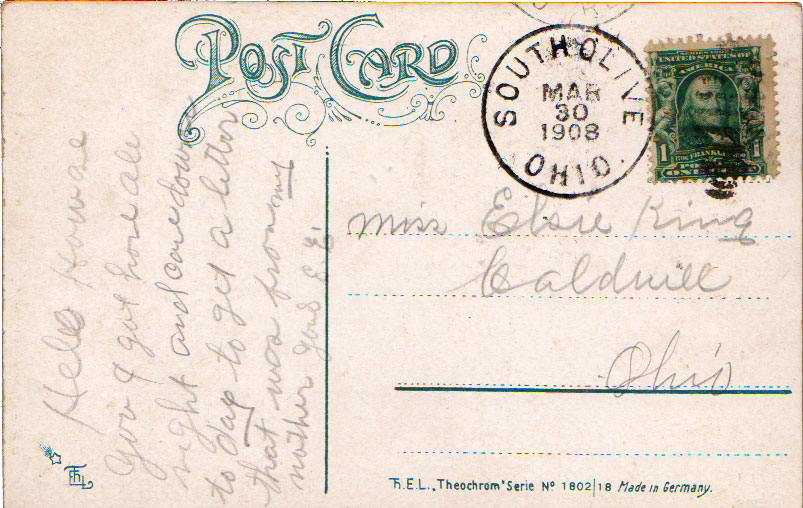 POST CARD
SOUTH OLIVE
MAR
30
1908
OHIO
UNITED STATES OF
AMERICA
1 FRANKLIN 1
ONE
Hello How are
you I got home all
right and came down
to day to get a letter
that was from my
mother yours
Miss Elsie King
Caldwell
Ohio
T.H.E.L. „Theochrom" Serie Nº 1802/18 Made in Germany.